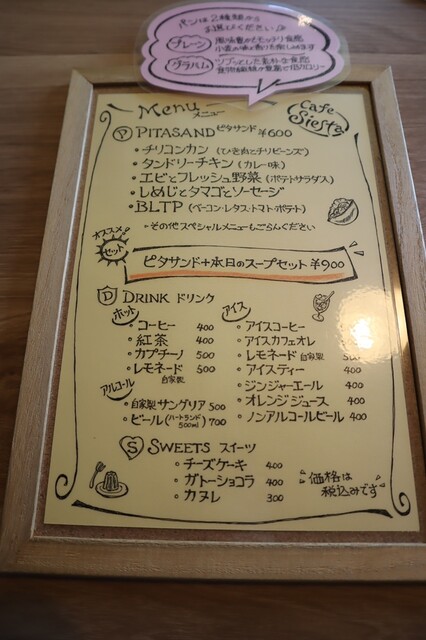 パンは2種類から
お選びください♪
プレーン 風味豊かでモッチリ食感
小麦の味と香りを楽しめます
グラハム ツブッとした素朴な食感
食物繊維が豊富で低カロリー
Menu
メニュー
Cafe
Siesta
P PITASAND ピタサンド ¥600
・チリコンカン (ひき肉とチリビーンズ)
・タンドリーチキン (カレー味)
・エビとフレッシュ野菜 (ポテトサラダス)
・しめじとタマゴとソーセージ
・BLTP (ベーコン・レタス・トマト・ポテト)
・その他スペシャルメニューもごらんください
オススメ!
セット
ピタサンド+本日のスープセット ¥900
D DRINK ドリンク
ホット
・コーヒー 400
・紅茶 400
・カプチーノ 500
・レモネード 500
自家製
アルコール
・自家製サングリア 500
・ビール (ハートランド 500ml) 700
アイス
・アイスコーヒー
・アイスカフェオレ
・レモネード 自家製
・アイスティー 400
・ジンジャーエール 400
・オレンジジュース 400
・ノンアルコールビール 400
S SWEETS スイーツ
・チーズケーキ 400
・ガトーショコラ 400
・カヌレ 300
価格は
税込みです